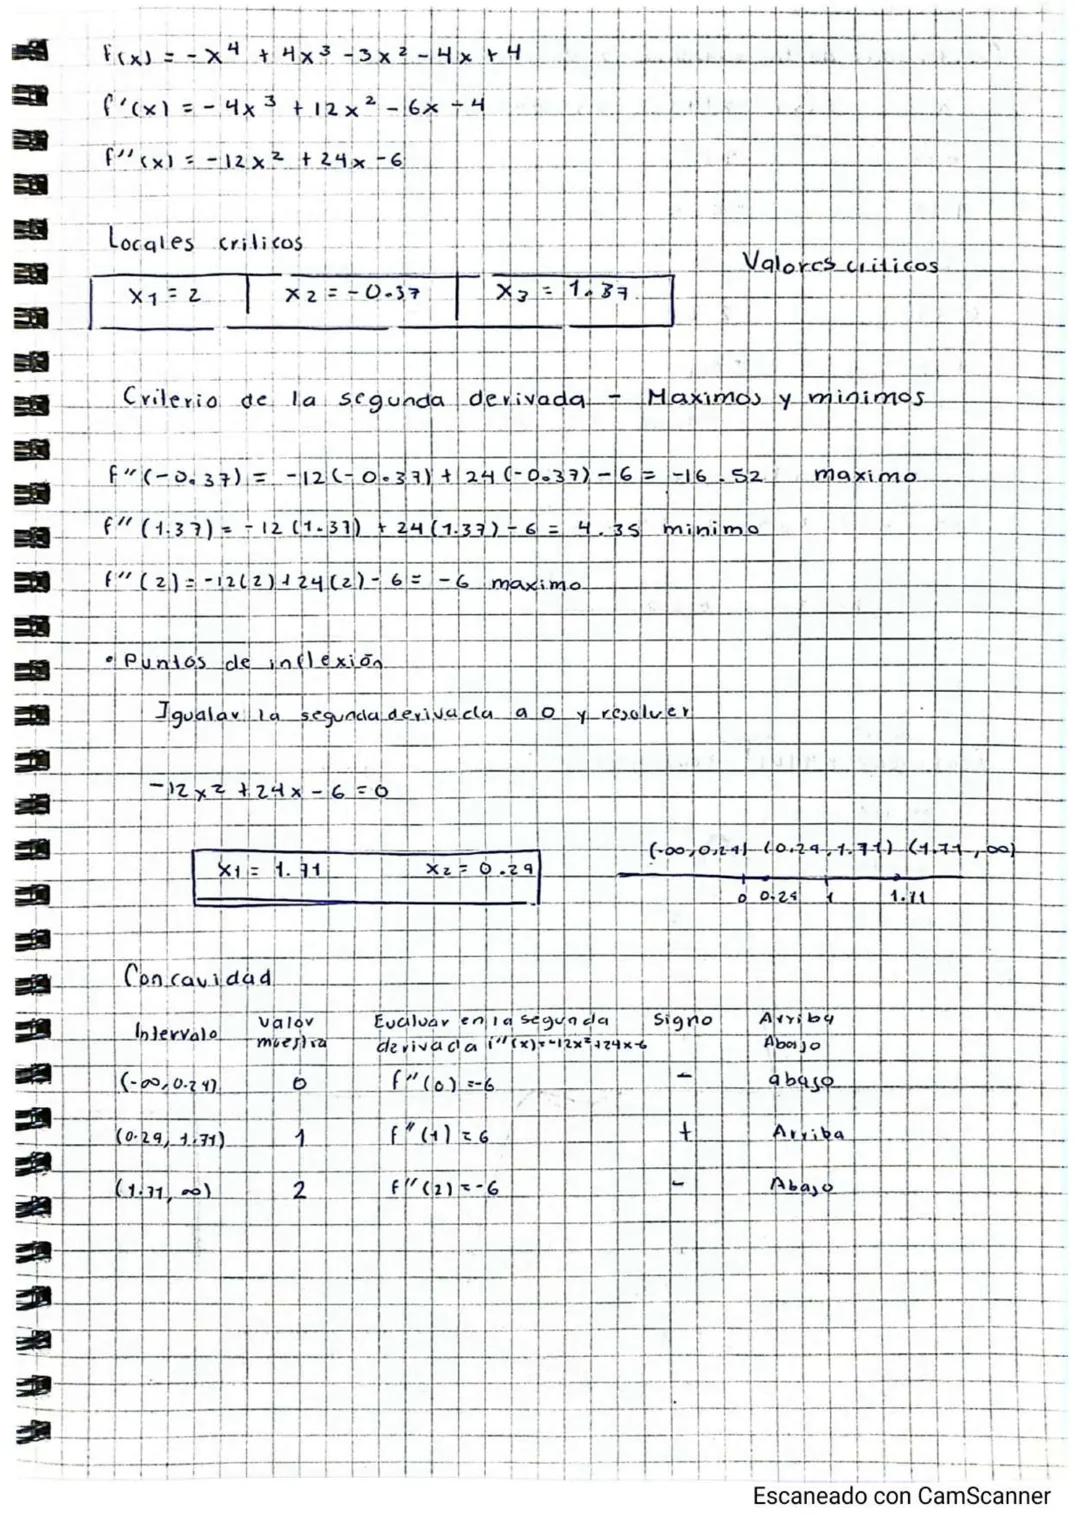 f(x) = -x⁴ + 4x³ - 3x² - 4x + 4
f'(x) = -4x³ + 12x² - 6x - 4
f''(x) = -12x² + 24x - 6
Locales criticos
Valores criticos
x1 = 2 x2 = -0.37 x3 = 1.37
Criterio de la segunda derivada - Maximos y minimos
f''(-0.37) = -12(-0.37) + 24(-0.37) - 6 = -16.52 maximo
f''(1.37) = -12(1.37) + 24(1.37) - 6 = 4.35 minimo
f''(2) = -12(2) + 24(2) - 6 = -6 maximo
• Puntos de inflexión
Igualar la segunda derivada a 0 y resolver
-12x² + 24x - 6 = 0
(-∞, 0.29) (0.29, 1.71) (1.71, ∞)
x1 = 1.71 x2 = 0.29
0 0.29 1 1.71
Concavidad
Intervalo Valor muestra Evaluar en la segunda derivada f''(x) = -12x² + 24x - 6 Signo Arriba Abajo
(-∞, 0.29) 0 f''(0) = -6 - abajo
(0.29, 1.71) 1 f''(1) = 6 + Arriba
(1.71, ∞) 2 f''(2) = -6 - Abajo
Escaneado con CamScanner